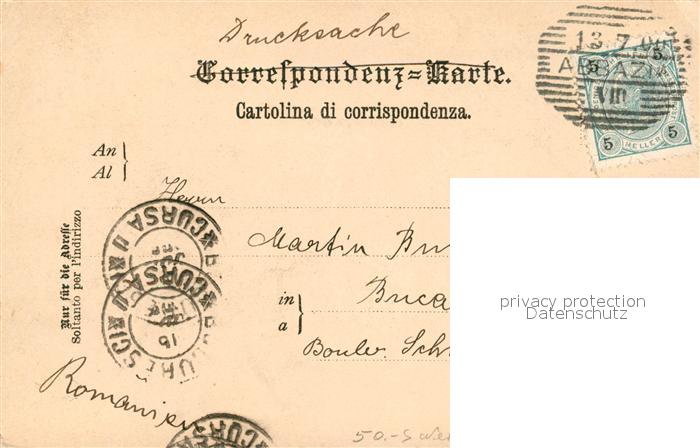 Drucksache
Correspondenz=Karte.
Cartolina di corrispondenza.
13 7 0
ABBAZIA
VIII
5 5
5 5
HELLER
An
Al
Herrn
Martin
in
a
Boulev.
Romanien
Nur für die Adresse
Soltanto per l'indirizzo
*CURSA II*
*CURSA
BUCURESCI
16
50.-S
privacy protection
Datenschutz